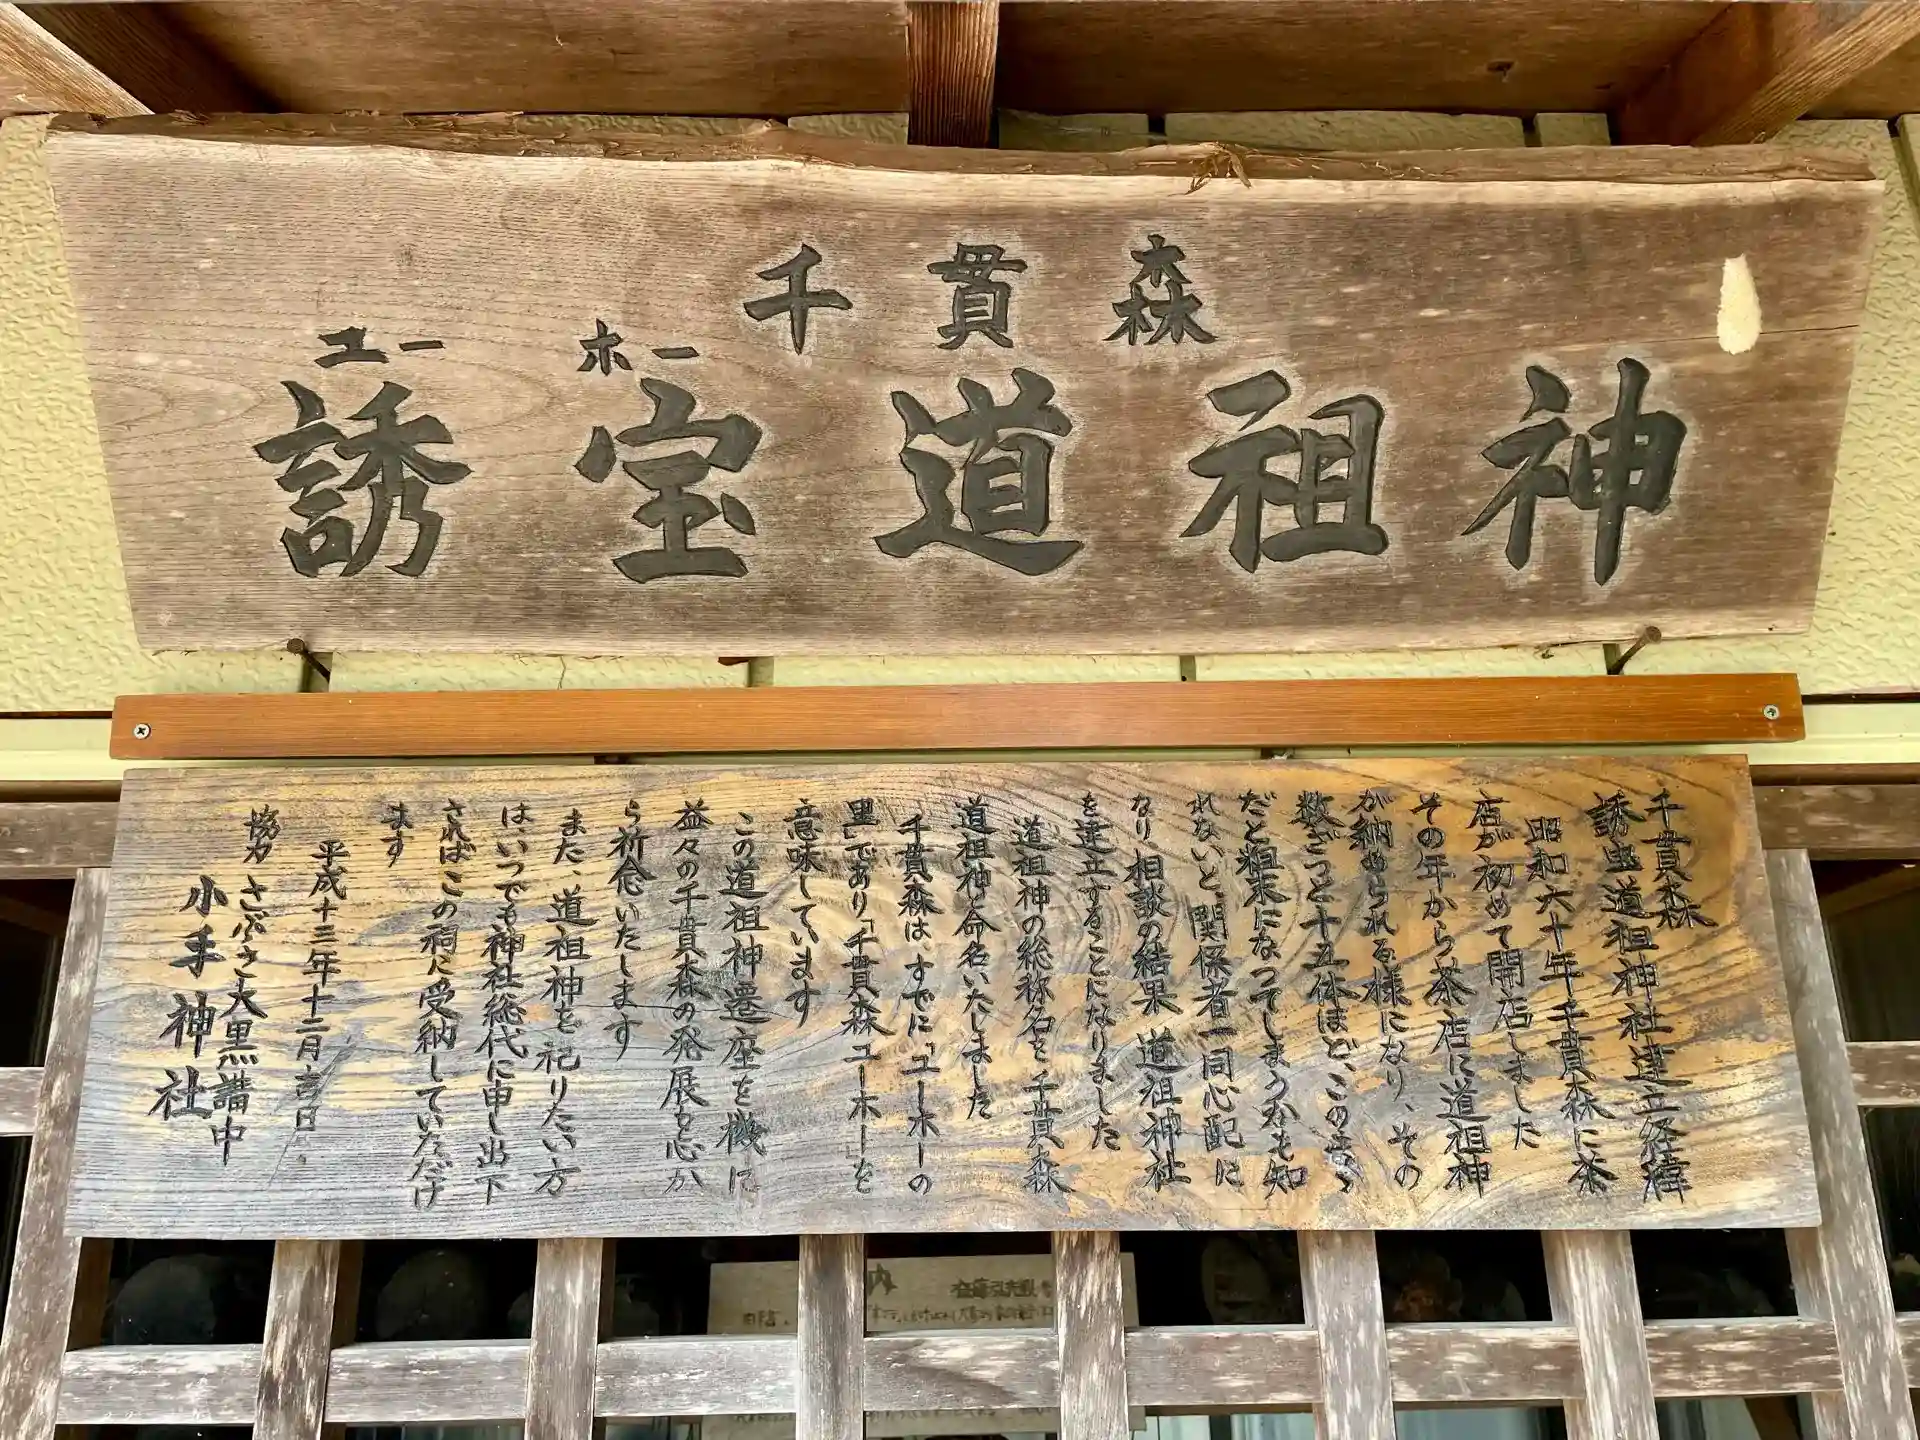 千貫森
ユー ホー
誘宝道祖神
千貫森
誘宝道祖神社建立経緯
昭和六十年千貫森に茶
店が初めて開店しました
その年から茶店に道祖神
が納められる様になり、その
数ざっと十五体ほど、このまゝ
だと粗末になってしまうかも知
れないと、関係者一同心配に
なり相談の結果 道祖神社
を建立することになりました
道祖神の総称名を千貫森
道祖神と命名いたしました
千貫森は、すでに「ユーホーの
里」であり「千貫森ユーホー」を
意味しています
この道祖神遷座を機に
益々の千貫森の発展を心か
ら祈念いたします
また、道祖神を祀りたい方
は、いつでも神社総代に申し出下
さればこの祠に受納していただけ
ます
平成十三年十二月吉日
協力 さぶさ大黒講中
小手神社
内